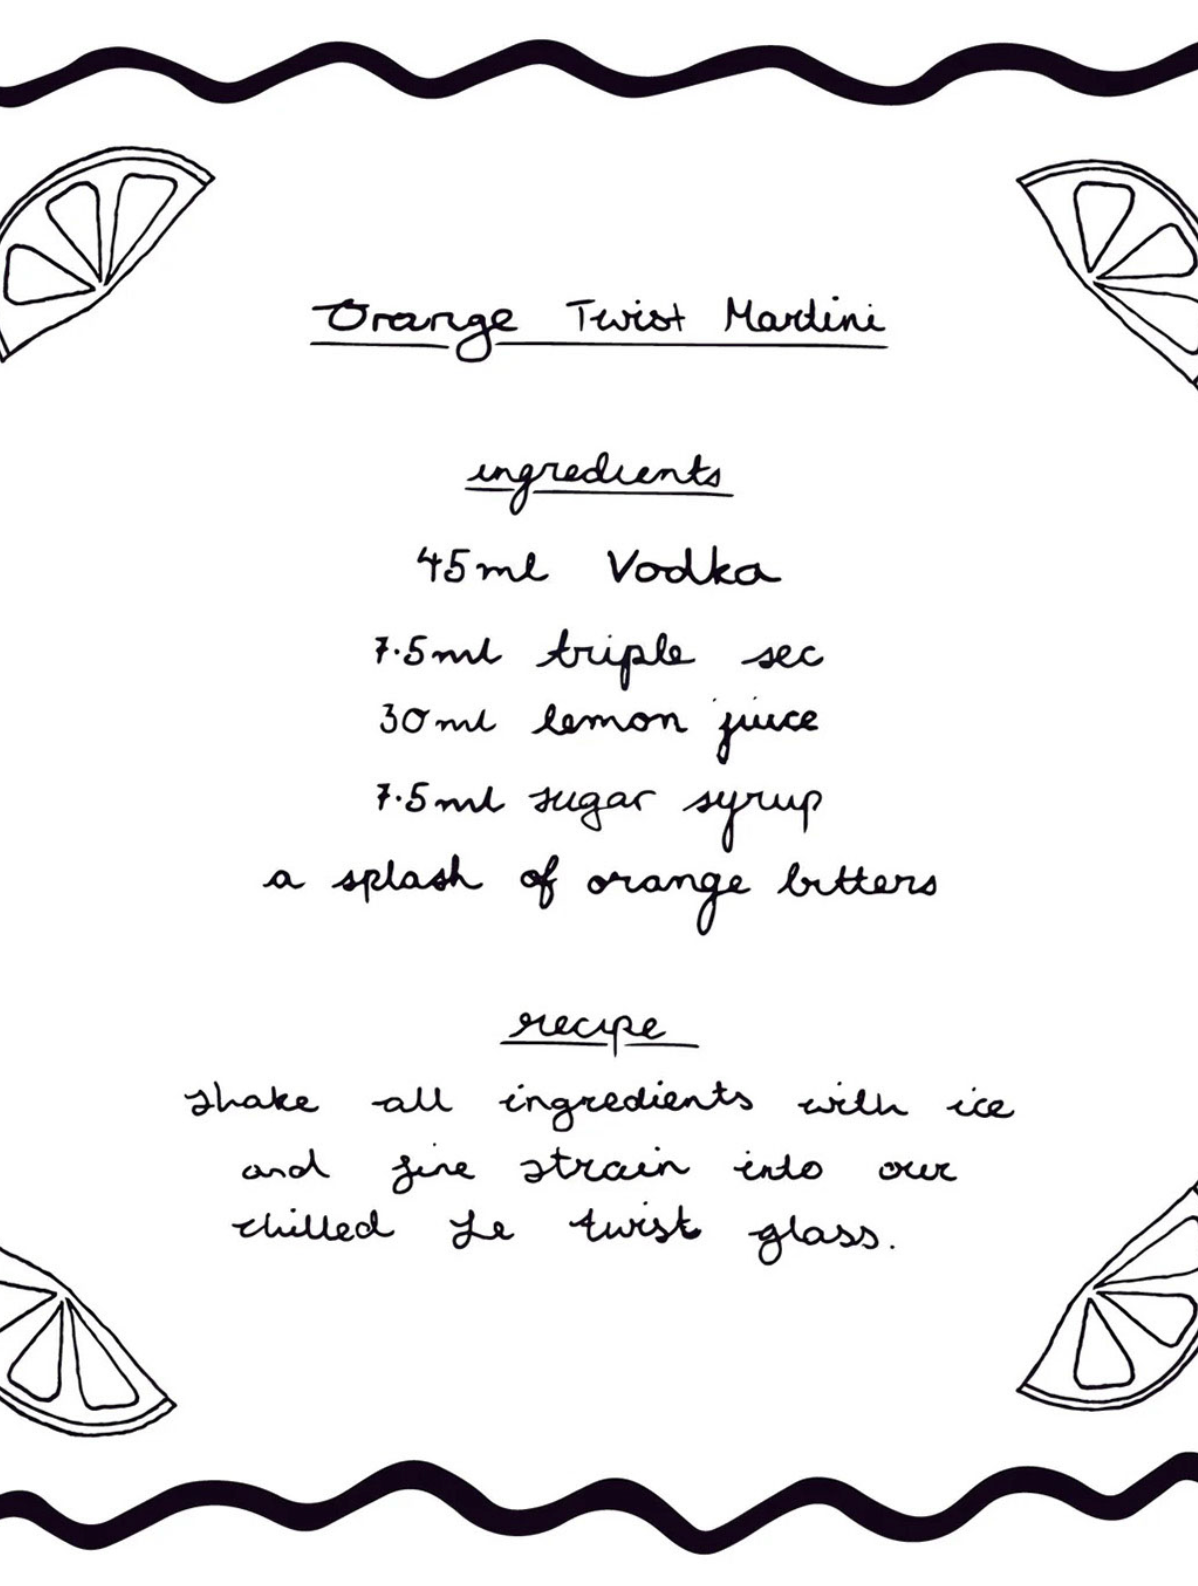 Orange Twist Martini
ingredients
45ml Vodka
7.5ml triple sec
30ml lemon juice
7.5ml sugar syrup
a splash of orange bitters
recipe
shake all ingredients with ice
and fine strain into our
chilled Le twist glass.